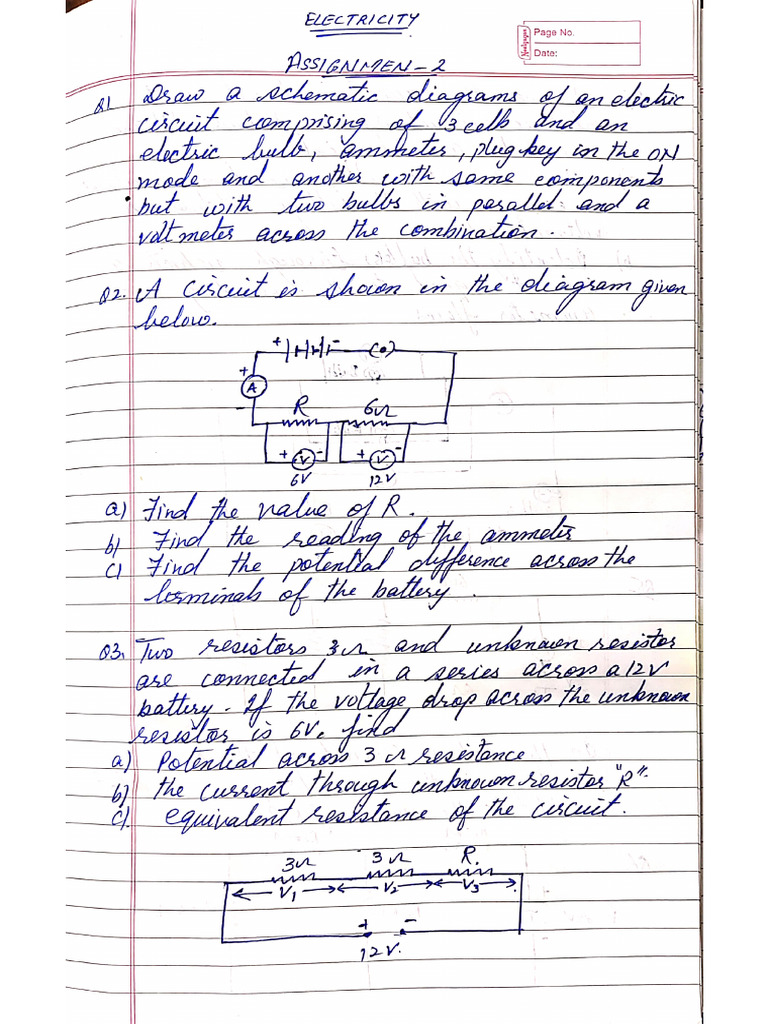 ELECTRICITY
Page No.
Date:
Needlepaper
ASSIGNMEN-2
Q1 Draw a schematic diagrams of an electric
circuit comprising of 3 cells and an
electric bulb, ammeter, plug key in the ON
mode and another with same components
but with two bulbs in parallel and a
voltmeter across the combination.
Q2. A circuit is shown in the diagram given
below.
+ - ( • )
+
A
-
R 6Ω
+ V - + V -
6V 12V
a) Find the value of R.
b) Find the reading of the ammeter
c) Find the potential difference across the
terminals of the battery.
Q3. Two resistors 3Ω and unknown resistor
are connected in a series across a 12V
battery. If the voltage drop across the unknown
resistor is 6V, find
a) Potential across 3Ω resistance
b) the current through unknown resistor "R".
c). equivalent resistance of the circuit.
3Ω 3Ω R.
V1 V2 V3
+ -
12V.